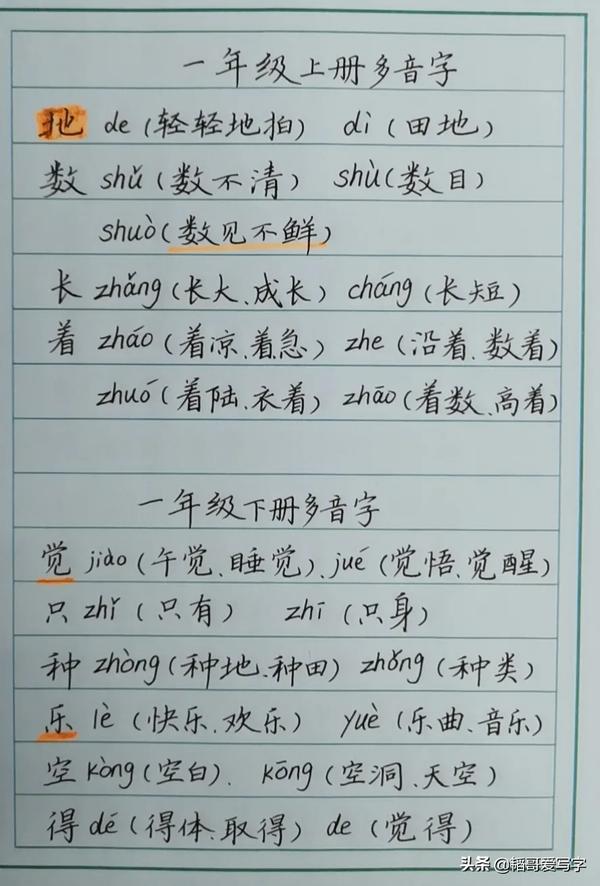 一年级上册多音字
地 de (轻轻地拍) dì (田地)
数 shǔ (数不清) shù (数目)
shuò (数见不鲜)
长 zhǎng (长大、成长) cháng (长短)
着 zháo (着凉、着急) zhe (沿着、数着)
zhuó (着陆、衣着) zhāo (着数、高着)
一年级下册多音字
觉 jiào (午觉、睡觉)、jué (觉悟、觉醒)
只 zhǐ (只有) zhī (只身)
种 zhòng (种地、种田) zhǒng (种类)
乐 lè (快乐、欢乐) yuè (乐曲、音乐)
空 kòng (空白)、kōng (空洞、天空)
得 dé (得体、取得) de (觉得)
头条 @韬哥爱写字